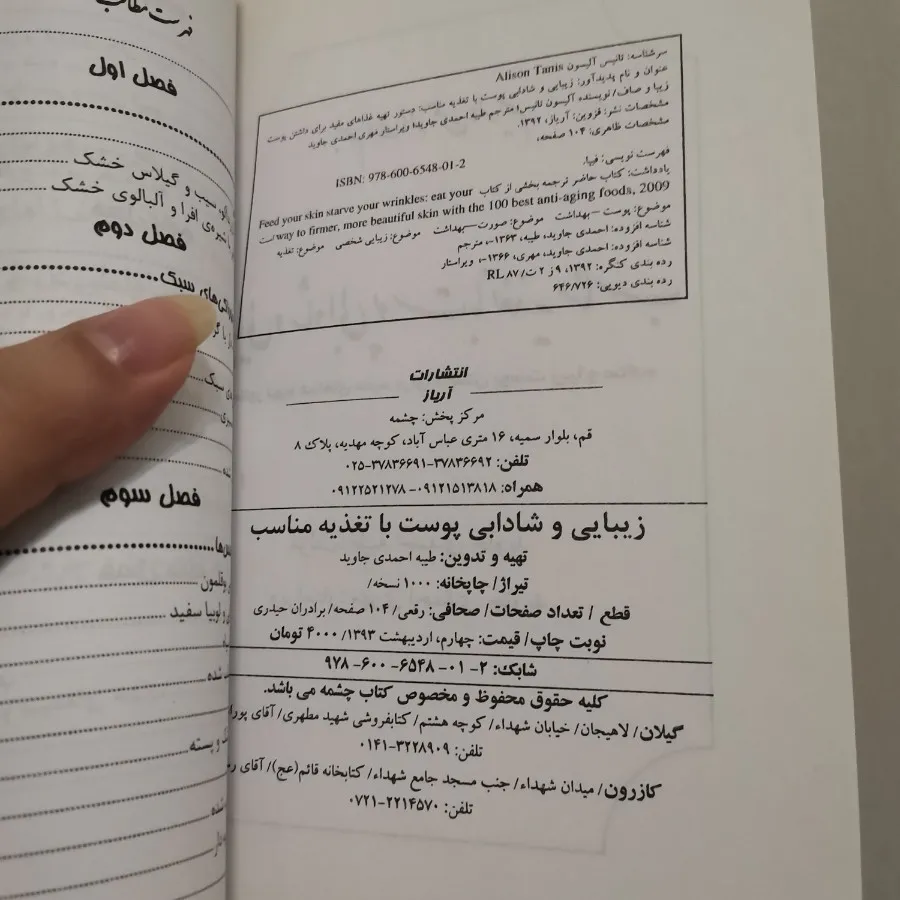 سرشناسه: تانیس آلیسون Alison Tanis
عنوان و نام پدیدآور: زیبایی و شادابی پوست با تغذیه مناسب: دستور تهیه غذاهای مفید برای داشتن پوست
زیبا و صاف/ نویسنده آلیسون تانیس؛ مترجم طیبه احمدی جاوید؛ ویراستار مهری احمدی جاوید
مشخصات نشر: قزوین: آریاز، ۱۳۹۲.
مشخصات ظاهری: ۱۰۴ صفحه،
ISBN: 978-600-6548-01-2
فهرست نویسی: فیپا.
یادداشت: کتاب حاضر ترجمه بخشی از کتاب Feed your skin starve your wrinkles: eat your
way to firmer, more beautiful skin with the 100 best anti-aging foods, 2009 است
موضوع: پوست – بهداشت موضوع: صورت – بهداشت موضوع: زیبایی شخصی موضوع: تغذیه
شناسه افزوده: احمدی جاوید، طیبه، ۱۳۶۳-، مترجم
شناسه افزوده: احمدی جاوید، مهری، ۱۳۶۶-، ویراستار
رده بندی کنگره: ۱۳۹۲، ۹ ز ۲ ت/ RL ۸۷
رده بندی دیویی: ۶۴۶/۷۲۶
انتشارات
آریاز
مرکز پخش: چشمه
قم، بلوار سمیه، ۱۶ متری عباس آباد، کوچه مهدیه، پلاک ۸
تلفن: ۳۷۸۳۶۶۹۲-۳۷۸۳۶۶۹۱-۰۲۵
همراه: ۰۹۱۲۱۵۱۳۸۱۸-۰۹۱۲۲۵۲۱۲۷۸
زیبایی و شادابی پوست با تغذیه مناسب
تهیه و تدوین: طیبه احمدی جاوید
تیراژ/ چاپخانه: ۱۰۰۰ نسخه/
قطع / تعداد صفحات/ صحافی: رقعی/ ۱۰۴ صفحه/ برادران حیدری
نوبت چاپ/ قیمت: چهارم، اردیبهشت ۱۳۹۳/ ۴۰۰۰ تومان
شابک: ۲- ۰۱- ۶۵۴۸- ۶۰۰- ۹۷۸
کلیه حقوق محفوظ و مخصوص کتاب چشمه می باشد.
گیلان/ لاهیجان/ خیابان شهداء/ کوچه هشتم/ کتابفروشی شهید مطهری/ آقای
تلفن: ۳۲۲۸۹۰۹-۰۱۴۱
کازرون/ میدان شهداء/ جنب مسجد جامع شهداء/ کتابخانه قائم(عج)/ آقای
تلفن: ۲۲۱۴۵۷۰-۰۷۲۱
فهرست مطالب
فصل اول
سیب و گیلاس خشک
افرا و آلبالوی خشک
فصل دوم
سبک
سبک
فصل سوم
بوقلمون
و لوبیا سفید
شده
و پسته
شده